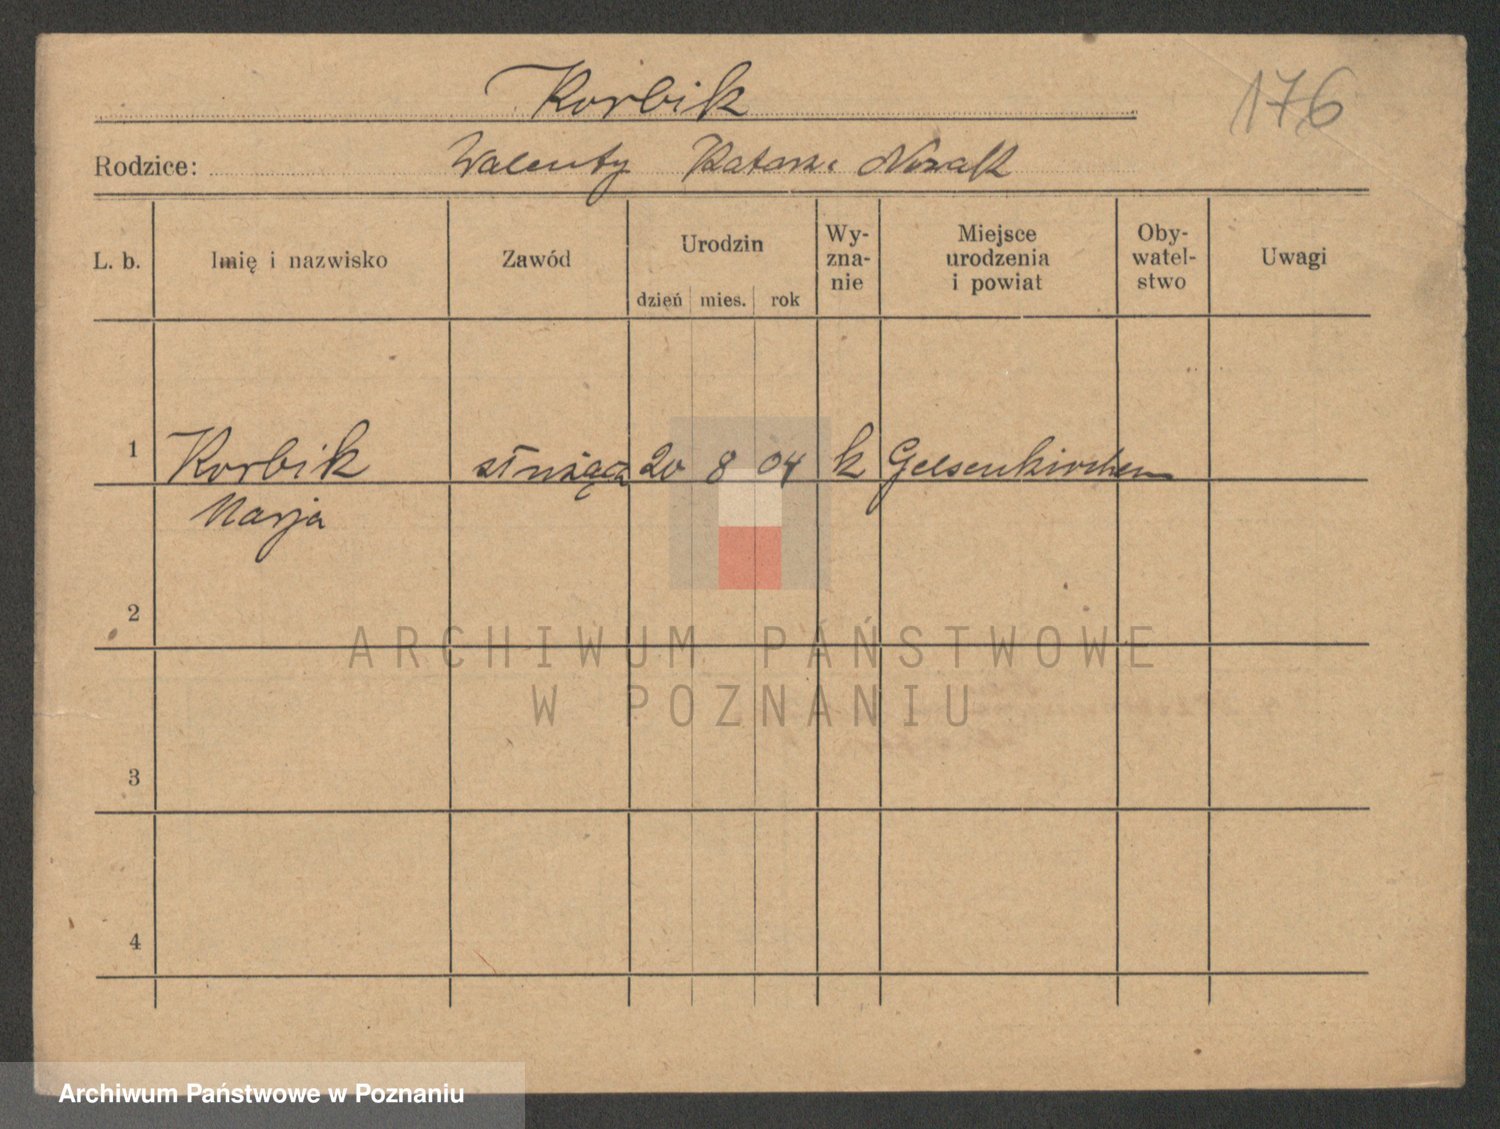 Korbik
176
Rodzice: Walenty Katarz. Nowak
L. b. Imię i nazwisko Zawód Urodzin dzień mies. rok Wy-zna-nie Miejsce urodzenia i powiat Oby-watel-stwo Uwagi
1 Korbik służąca 20 8 04 k Gelsenkirchen
Marja
2
ARCHIWUM PAŃSTWOWE
W POZNANIU
3
4
Archiwum Państwowe w Poznaniu